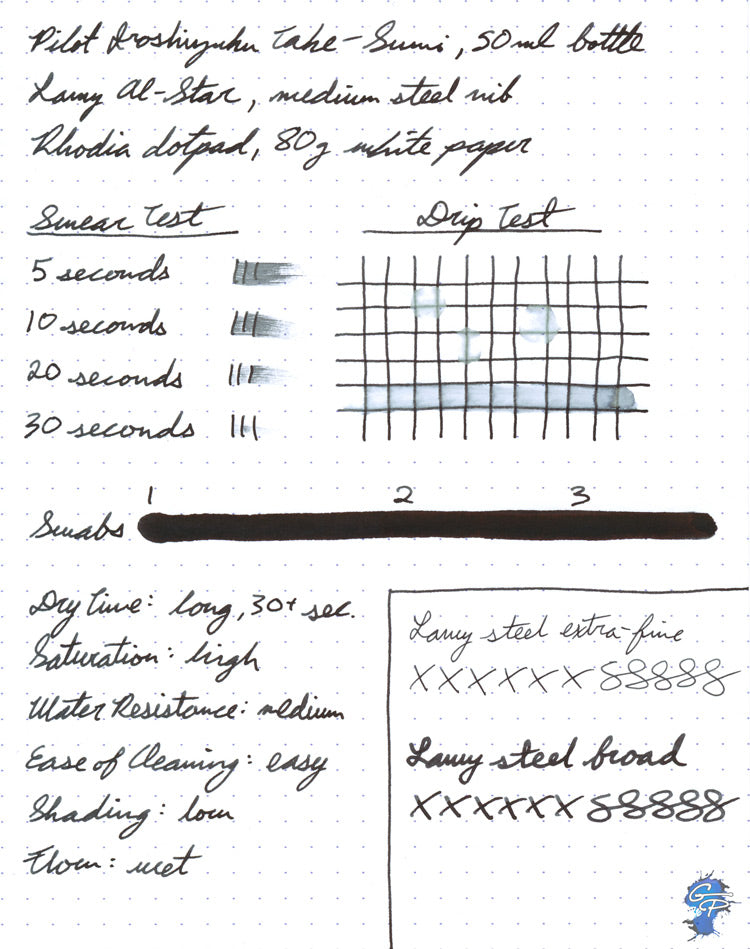 Pilot Iroshizuku Take-Sumi, 50ml bottle
Lamy Al-Star, medium steel nib
Rhodia dotpad, 80g white paper
Smear Test
5 seconds
10 seconds
20 seconds
30 seconds
Drip Test
1 2 3
Swabs
Dry Time: long, 30+ sec.
Saturation: high
Water Resistance: medium
Ease of Cleaning: easy
Shading: low
Flow: wet
Lamy steel extra-fine
XXXXXX 88888
Lamy steel broad
XXXXXX 88888
GP